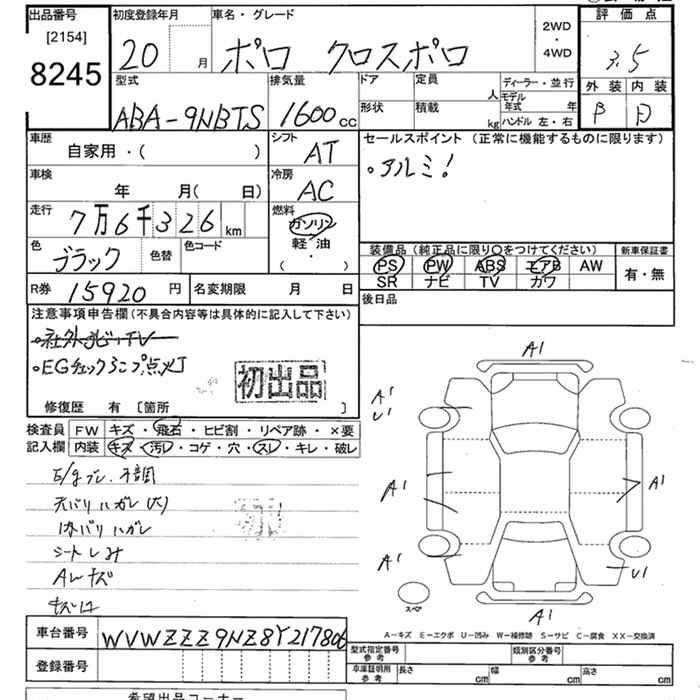 出品番号
[2154]
8245
初度登録年月
20 月
車名・グレード
ポロ クロスポロ
2WD
・
4WD
評価点
3.5
外装 内装
B D
型式
ABA-9NBTS
排気量
1600 cc
ドア
形状
定員 人
積載 kg
ディーラー・並行
モデル年式 年
ハンドル 左・右
車歴
自家用・( )
シフト
AT
セールスポイント (正常に機能するものに限ります)
・アルミ!
車検
年 月( 日)
冷房
AC
走行
7万6千326 km
燃料
ガソリン
軽・油
( ・ )
色
ブラック
色替
色コード
装備品(純正品に限り○をつけてください)
PS PW ABS エアB AW
SR ナビ TV カワ
新車保証書
有・無
R券
15920 円
名変期限 月 日
後日品
注意事項申告欄(不具合内容等は具体的に記入して下さい)
・社外ナビ・TV
・EGチェックランプ点灯
初出品
修復歴 有 [箇所 ]
検査員
記入欄
FW キズ・飛石・ヒビ割・リペア跡・×要
内装 キズ・汚レ・コゲ・穴・スレ・キレ・破レ
天バリハガレ
内バリハガレ
シートシミ
Aレキズ
A1
A1
U1
A1
A1
A1
U1
A1
スペア
A-キズ E-エクボ U-凹み W-補修跡 S-サビ C-腐食 XX-交換済
車台番号
WVWZZZ9NZ8Y217806
登録番号
型式指定番号
参考
類別区分番号
参考
車庫証明用
参考
長さ cm
幅 cm
高さ cm
希望出品コーナー